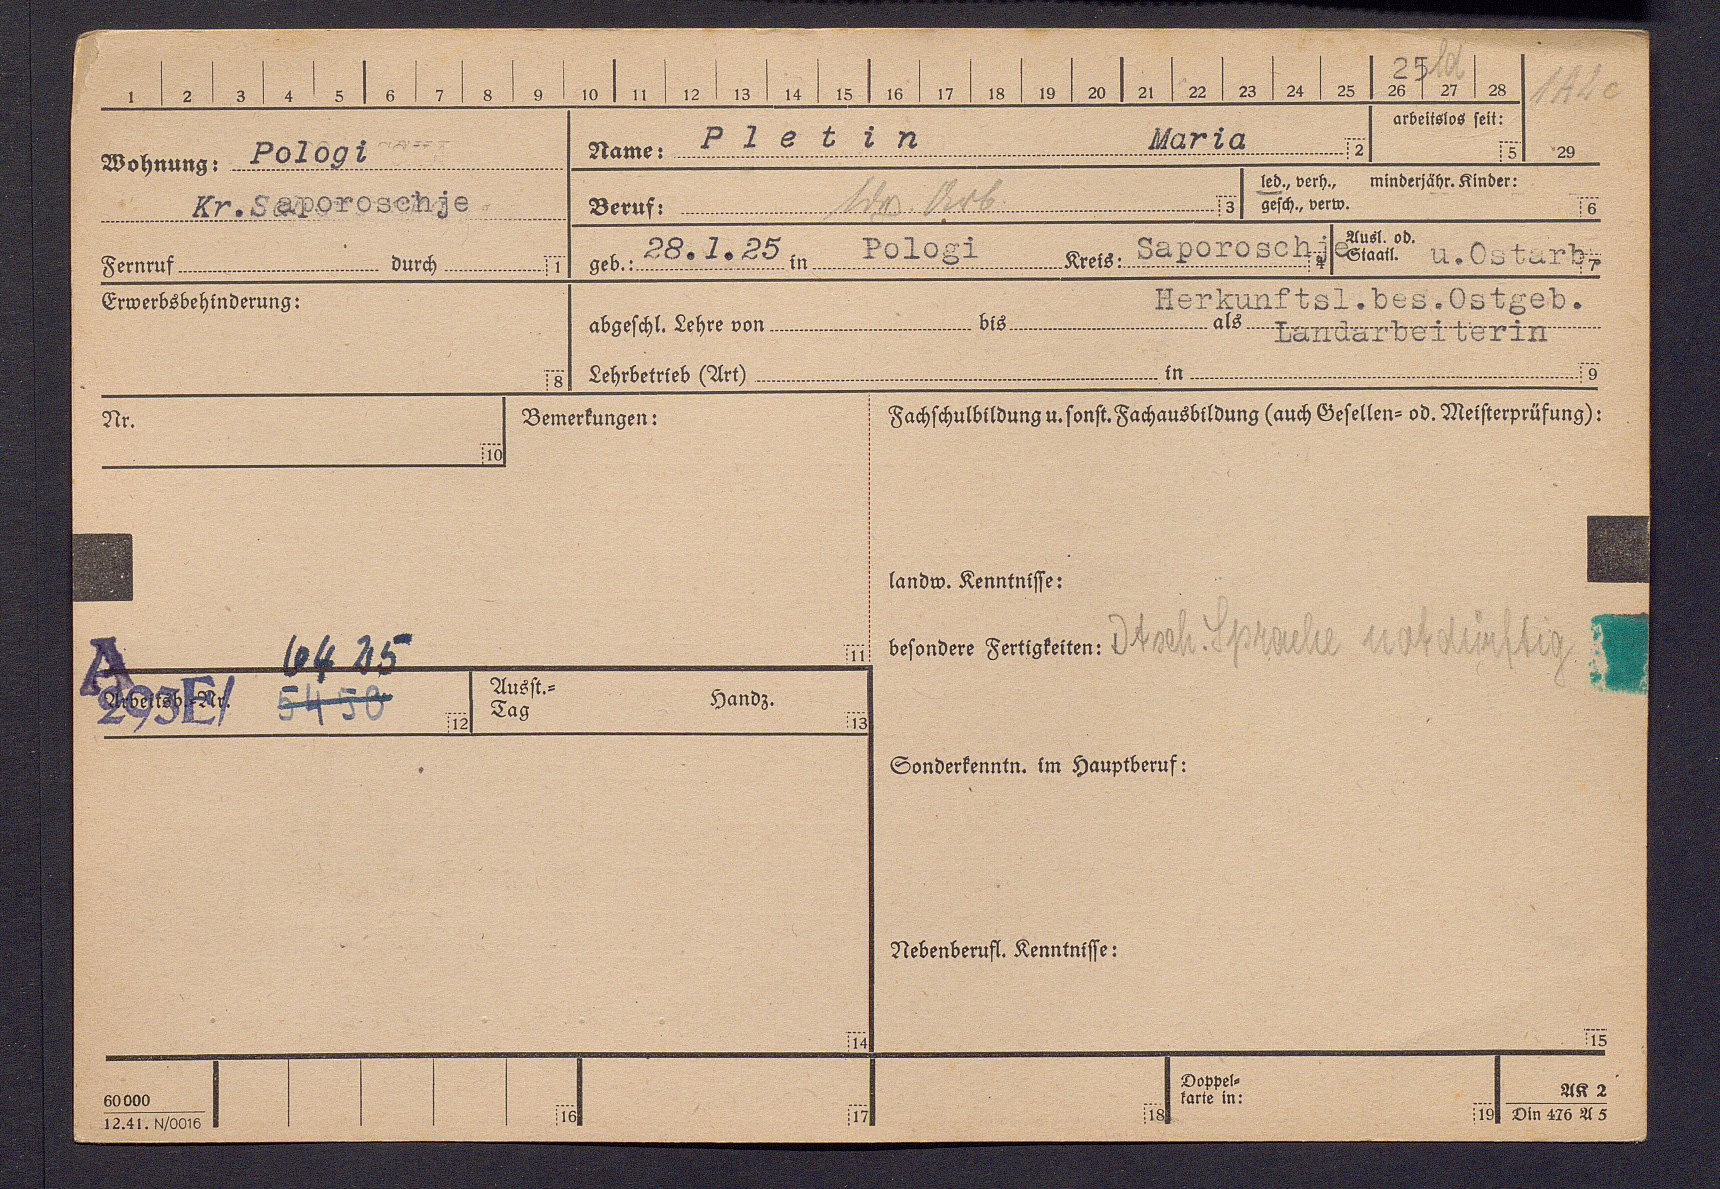 25 ld
1A2c
1 2 3 4 5 6 7 8 9 10 11 12 13 14 15 16 17 18 19 20 21 22 23 24 25 26 27 28
arbeitslos seit:
5 29
Wohnung: Pologi
Kr.Saporoschje
Fernruf durch 1
Name: Pletin Maria 2
Beruf: Arb. 3
led., verh., minderjähr. Kinder:
gesch., verw. 6
geb.: 28.1.25 in Pologi Kreis: Saporoschje 4
Ausl. od. Staatl. u.Ostarb. 7
Erwerbsbehinderung:
8
Herkunftsl.bes.Ostgeb.
abgeschl. Lehre von bis als Landarbeiterin
Lehrbetrieb (Art) in 9
Nr.
10
Bemerkungen:
11
Fachschulbildung u. sonst. Fachausbildung (auch Gesellen- od. Meisterprüfung):
landw. Kenntnisse:
besondere Fertigkeiten: Dtsch. Sprache notdürftig
A
293E/
6425
Arbeitsb.-Nr. 5450 12
Ausst.-Tag Handz. 13
Sonderkenntn. im Hauptberuf:
Nebenberufl. Kenntnisse:
14
15
60000
12.41. N/0016
16 17 18
Doppel-
karte in: 19
AK 2
Din 476 A 5